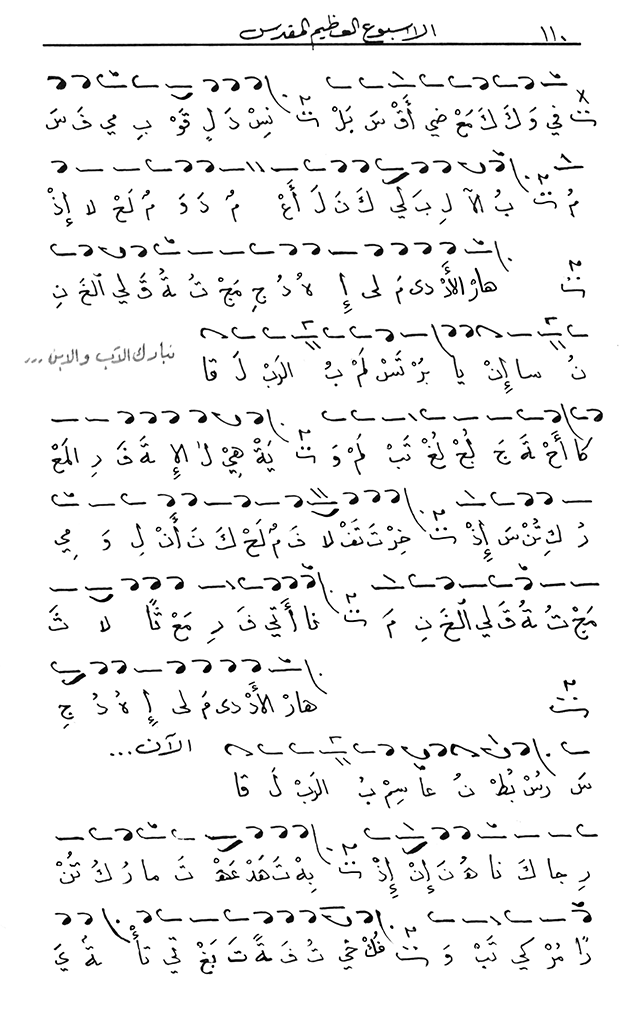 ١١٠ الاسبوع العظيم المقدس
في وَ كَ كَ مَعْ ضي أَفْ سَ بَلْ نِسْ دَ لٍ قَوْ بِ مي خَ سَ
مُ بُ الآ لِ بَ لي كَ نَ لَ أَعْ مُ دَ وَ مُ لَعْ لا إِذْ
هارْ الأَدْ دى مَ لى إِ هُ دُ جِ مَجْ تُ ةُ قَ لي الخَ نِ
نُ سا إِنْ يا بَرْ شَسْ لَمْ بُ الرَبْ لَ قا
نبارك الآب والابن ...
كا أَحْ ةَ جَ لُجْ لُغْ تَبْ لَمْ وَ يَةْ هِيْ لْ الإِ ةَ قَ رِ المَعْ
رُ كِ تُنْ سَ إِذْ خِرْ تَ نَفْ لا خَ مُ لَحْ كَ نَ أَنْ لِ وَ مِي
مَجْ تُ ةُ قَ لي الخَ نِ مَ نا أَتي خَ رِ مَعْ تًا لا ثَ
هارْ الأَدْ دى مَ لى إِ هُ دُ جِ
الآن...
سَ رسْ بُطْ نُ عا سِمْ بُ الرَبْ لَ قا
رِ جا كَ نا هُ نَ إِنْ إِذْ بِهْ تَ هَدْ عَهْ تَ ما رُ كُ تُنْ
رًا مُرْ كي تَبْ وَ فُكْ خي ثُ خَ ةً تَ بَغْ تي تأْ ةُ يَ